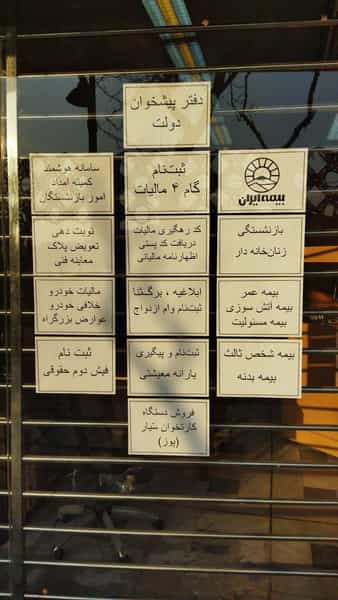 دفتر پیشخوان
دولت
ثبت‌نام
گام ۴ مالیات
بیمه ایران
سامانه هوشمند
کمیته امداد
امور بازنشستگان
بازنشستگی
زنان‌خانه دار
کد رهگیری مالیات
دریافت کد پستی
اظهارنامه مالیاتی
نوبت دهی
تعویض پلاک
معاینه فنی
بیمه عمر
بیمه آتش سوزی
بیمه مسئولیت
ابلاغیه ، برگ‌ثنا
ثبت‌نام وام ازدواج
مالیات خودرو
خلافی خودرو
عوارض بزرگراه
بیمه شخص ثالث
بیمه بدنه
ثبت‌نام و پیگیری
یارانه معیشتی
ثبت نام
فیش دوم حقوقی
فروش دستگاه
کارتخوان سیار
(پوز)